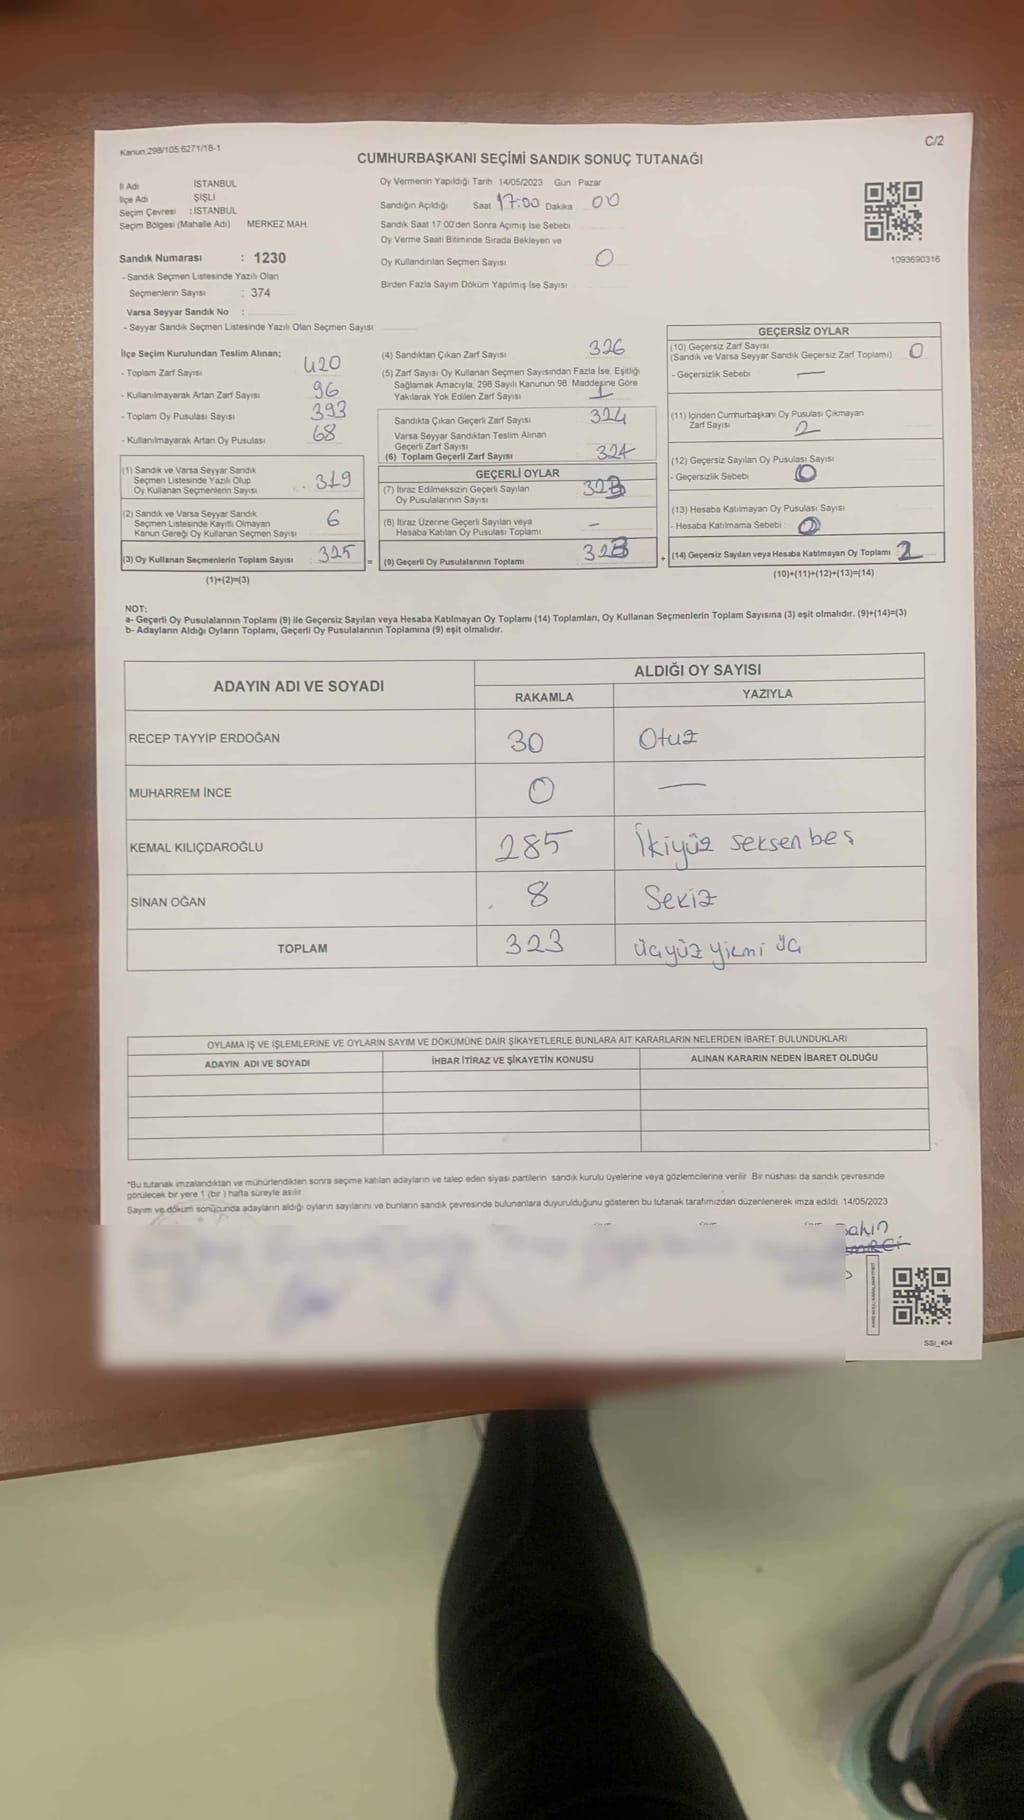 Kanun:298/105:6271/18-1
C/2
CUMHURBAŞKANI SEÇİMİ SANDIK SONUÇ TUTANAĞI
İl Adı İSTANBUL
İlçe Adı ŞİŞLİ
Seçim Çevresi : İSTANBUL
Seçim Bölgesi (Mahalle Adı) MERKEZ MAH.
Oy Vermenin Yapıldığı Tarih 14/05/2023 Gün Pazar
Sandığın Açıldığı Saat 17:00 Dakika 00
Sandık Saat 17:00'den Sonra Açımış İse Sebebi
Oy Verme Saati Bitiminde Sırada Bekleyen ve
Oy Kullandırılan Seçmen Sayısı 0
Birden Fazla Sayım Döküm Yapılmış İse Sayısı
1093690316
Sandık Numarası : 1230
- Sandık Seçmen Listesinde Yazılı Olan
Seçmenlerin Sayısı : 374
Varsa Seyyar Sandık No :
- Seyyar Sandık Seçmen Listesinde Yazılı Olan Seçmen Sayısı:
İlçe Seçim Kurulundan Teslim Alınan;
- Toplam Zarf Sayısı 420
- Kullanılmayarak Artan Zarf Sayısı 96
- Toplam Oy Pusulası Sayısı 393
- Kullanılmayarak Artan Oy Pusulası 68
(1) Sandık ve Varsa Seyyar Sandık
Seçmen Listesinde Yazılı Olup
Oy Kullanan Seçmenlerin Sayısı 319
(2) Sandık ve Varsa Seyyar Sandık
Seçmen Listesinde Kayıtlı Olmayan
Kanun Gereği Oy Kullanan Seçmen Sayısı 6
(3) Oy Kullanan Seçmenlerin Toplam Sayısı 325 =
(1)+(2)=(3)
(4) Sandıktan Çıkan Zarf Sayısı 326
(5) Zarf Sayısı Oy Kullanan Seçmen Sayısından Fazla İse, Eşitliği
Sağlamak Amacıyla, 298 Sayılı Kanunun 98. Maddesine Göre
Yakılarak Yok Edilen Zarf Sayısı 1
Sandıkta Çıkan Geçerli Zarf Sayısı 324
Varsa Seyyar Sandıktan Teslim Alınan
Geçerli Zarf Sayısı
(6) Toplam Geçerli Zarf Sayısı 324
GEÇERLİ OYLAR
(7) İtiraz Edilmeksizin Geçerli Sayılan
Oy Pusulalarının Sayısı 323
(8) İtiraz Üzerine Geçerli Sayılan veya
Hesaba Katılan Oy Pusulası Toplamı –
(9) Geçerli Oy Pusulalarının Toplamı 323 +
GEÇERSİZ OYLAR
(10) Geçersiz Zarf Sayısı
(Sandık ve Varsa Seyyar Sandık Geçersiz Zarf Toplamı) 0
- Geçersizlik Sebebi —
(11) İçinden Cumhurbaşkanı Oy Pusulası Çıkmayan
Zarf Sayısı 2
(12) Geçersiz Sayılan Oy Pusulası Sayısı
- Geçersizlik Sebebi 0
(13) Hesaba Katılmayan Oy Pusulası Sayısı
- Hesaba Katılmama Sebebi 0
(14) Geçersiz Sayılan veya Hesaba Katılmayan Oy Toplamı 2
(10)+(11)+(12)+(13)=(14)
NOT:
a- Geçerli Oy Pusulalarının Toplamı (9) ile Geçersiz Sayılan veya Hesaba Katılmayan Oy Toplamı (14) Toplamları, Oy Kullanan Seçmenlerin Toplam Sayısına (3) eşit olmalıdır. (9)+(14)=(3)
b- Adayların Aldığı Oyların Toplamı, Geçerli Oy Pusulalarının Toplamına (9) eşit olmalıdır.
ADAYIN ADI VE SOYADI
ALDIĞI OY SAYISI
RAKAMLA YAZIYLA
RECEP TAYYİP ERDOĞAN 30 Otuz
MUHARREM İNCE 0 —
KEMAL KILIÇDAROĞLU 285 İkiyüz seksen beş
SİNAN OĞAN 8 Sekiz
TOPLAM 323 Üçyüz yirmi üç
OYLAMA İŞ VE İŞLEMLERİNE VE OYLARIN SAYIM VE DÖKÜMÜNE DAİR ŞİKAYETLERLE BUNLARA AİT KARARLARIN NELERDEN İBARET BULUNDUKLARI
ADAYIN ADI VE SOYADI İHBAR İTİRAZ VE ŞİKAYETİN KONUSU ALINAN KARARIN NEDEN İBARET OLDUĞU
*Bu tutanak imzalandıktan ve mühürlendikten sonra seçime katılan adayların ve talep eden siyasi partilerin sandık kurulu üyelerine veya gözlemcilerine verilir. Bir nüshası da sandık çevresinde
görülecek bir yere 1 (bir ) hafta süreyle asılır.
Sayım ve döküm sonucunda adayların aldığı oyların sayılarını ve bunların sandık çevresinde bulunanlara duyurulduğunu gösteren bu tutanak tarafımızdan düzenlenerek imza edildi. 14/05/2023
SSI_404